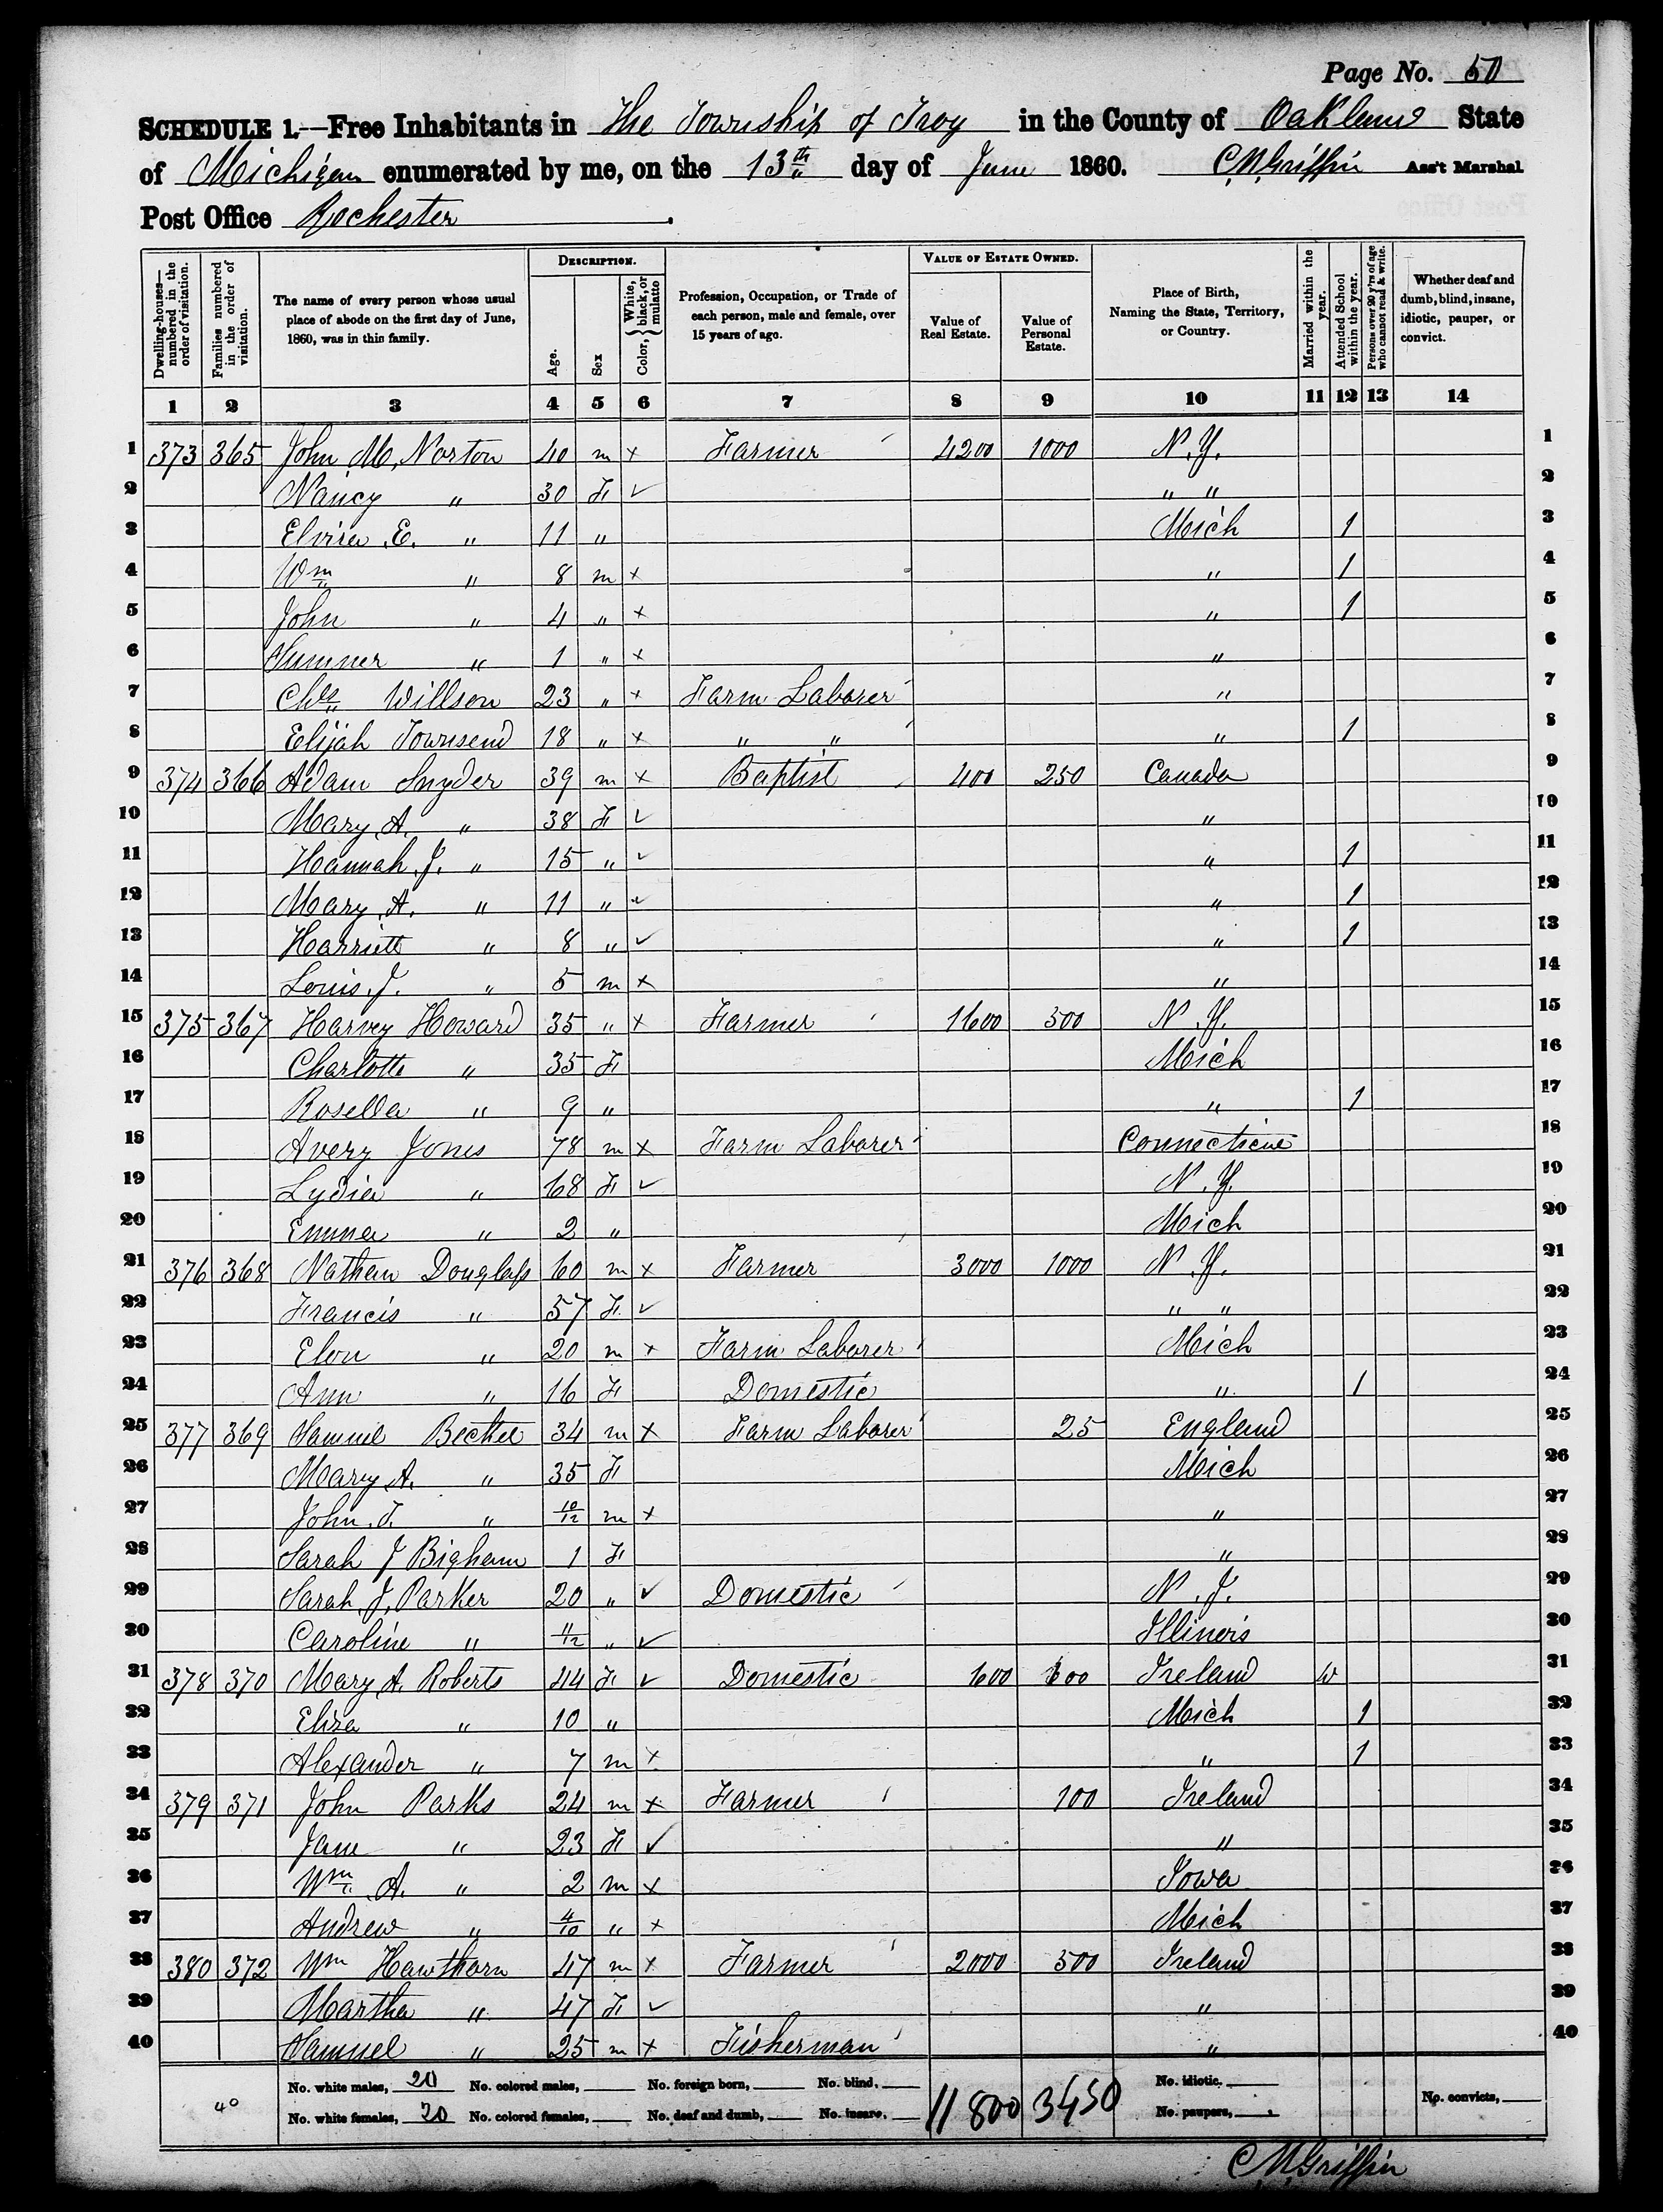 Page No. 50
SCHEDULE 1.—Free Inhabitants in The Township of Troy in the County of Oakland State
of Michigan enumerated by me, on the 13th day of June 1860. C M Griffin Ass't Marshal
Post Office Rochester.
Dwelling-houses—numbered in the order of visitation.
Families numbered in the order of visitation.
The name of every person whose usual place of abode on the first day of June, 1860, was in this family.
DESCRIPTION.
Age.
Sex
Color, } White, black, or mulatto
Profession, Occupation, or Trade of each person, male and female, over 15 years of age.
VALUE OF ESTATE OWNED.
Value of Real Estate.
Value of Personal Estate.
Place of Birth, Naming the State, Territory, or Country.
Married within the year.
Attended School within the year.
Persons over 20 y'rs of age who cannot read & write.
Whether deaf and dumb, blind, insane, idiotic, pauper, or convict.
1 2 3 4 5 6 7 8 9 10 11 12 13 14
1 373 365 John M. Norton 40 m x Farmer 4200 1000 N.Y. 1
2 Nancy " 30 F ✓ " " 2
3 Elvira E. " 11 " Mich 1 3
4 Wm " 8 m x " 1 4
5 John " 4 " x " 1 5
6 Sumner " 1 " x " 6
7 Chls Willson 23 " x Farm Laborer " 7
8 Elijah Townsend 18 " x " " " 1 8
9 374 366 Adam Snyder 39 m x Baptist 400 250 Canada 9
10 Mary A. " 38 F ✓ " 10
11 Hannah J. " 15 " ✓ " 1 11
12 Mary A. " 11 " ✓ " 1 12
13 Harriett " 8 " ✓ " 1 13
14 Louis J. " 5 m x " 14
15 375 367 Harvey Howard 35 " x Farmer 1600 500 N.Y. 15
16 Charlotte " 35 F Mich 16
17 Rosella " 9 " " 1 17
18 Avery Jones 78 m x Farm Laborer Connecticut 18
19 Lydia " 68 F ✓ N.Y. 19
20 Emma " 2 " Mich 20
21 376 368 Nathan Douglass 60 m x Farmer 3000 1000 N.Y. 21
22 Francis " 57 F. ✓ " " 22
23 Elon " 20 m x Farm Laborer Mich 23
24 Ann " 16 F Domestic " 1 24
25 377 369 Samuel Becket 34 m x Farm Laborer 25 England 25
26 Mary A. " 35 F Mich 26
27 John T. " 10/12 m x " 27
28 Sarah J Bigham 1 F " 28
29 Sarah J. Parker 20 " ✓ Domestic N.J. 29
30 Caroline " 11/12 " ✓ Illinois 30
31 378 370 Mary A. Roberts 44 F ✓ Domestic 600 Ireland W 31
32 Eliza " 10 " Mich 1 32
33 Alexander " 7 m x " 1 33
34 379 371 John Parks 24 m x Farmer 100 Ireland 34
35 Jane " 23 F ✓ " 35
36 Wm A. " 2 m x Iowa 36
37 Andrew " 4/10 " x Mich 37
38 380 372 Wm Hawthorn 47 m x Farmer 2000 500 Ireland 38
39 Martha " 47 F ✓ " 39
40 Samuel " 25 m x Fisherman " 40
40 No. white males, 20 No. colored males, No. foreign born, No. blind, 11800 3450 No. idiotic, No. convicts,
No. white females, 20 No. colored females, No. deaf and dumb, No. insane, No. paupers,
C M Griffin